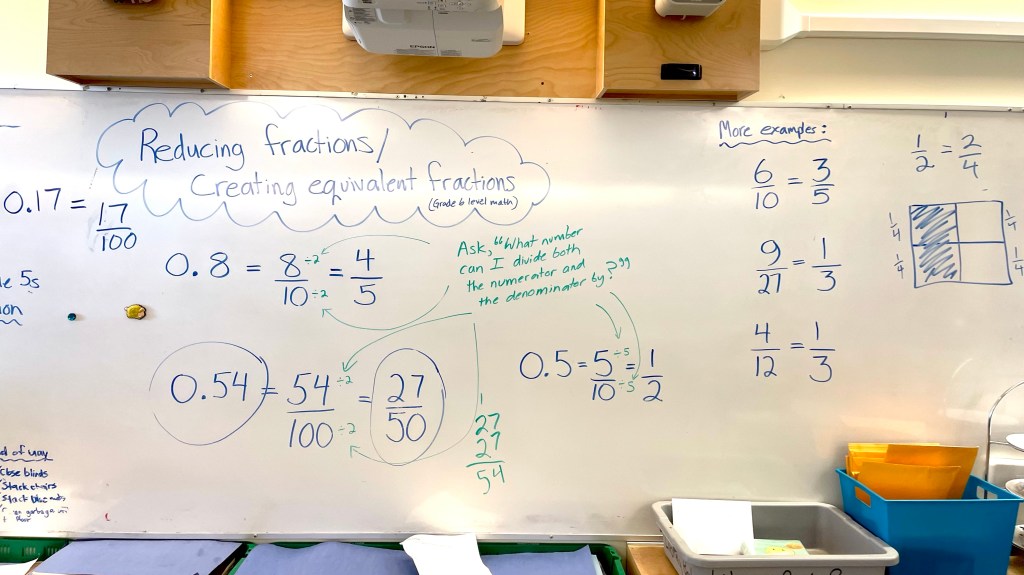 EPSON
Reducing fractions/
Creating equivalent fractions
(Grade 6 level math)
0.17 = 17/100
0.8 = 8/10 = 4/5
÷2
÷2
Ask, "What number
can I divide both
the numerator and
the denominator by?"
0.54 = 54/100 = 27/50
÷2
÷2
1
27
27
54
0.5 = 5/10 = 1/2
÷5
÷5
More examples:
6/10 = 3/5
9/27 = 1/3
4/12 = 1/3
1/2 = 2/4
1/4
1/4
1/4
1/4
5s
on
d of way
Close blinds
Stack chairs